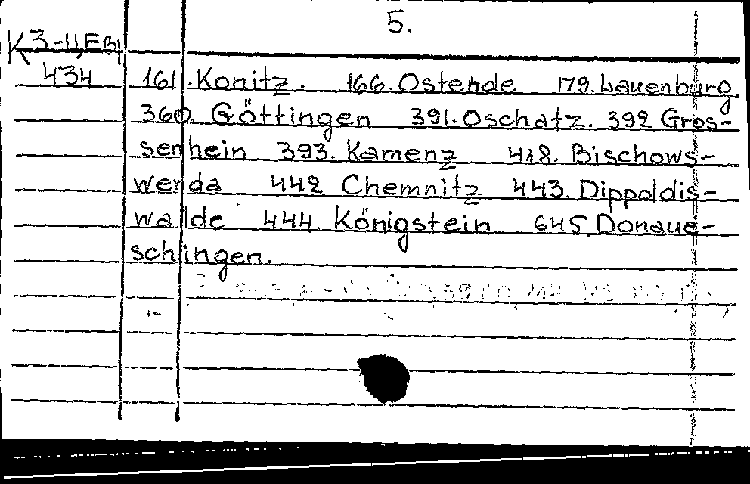 5.
K 3-11, EB1
434 161. Konitz. 166. Ostende 179. Lauenburg
360 Göttingen 391. Oschatz. 392 Gros-
senhein 393. Kamenz 418. Bischows-
werda 442 Chemnitz 443. Dippoldis-
walde 444 Königstein 645. Donaue-
schlingen.